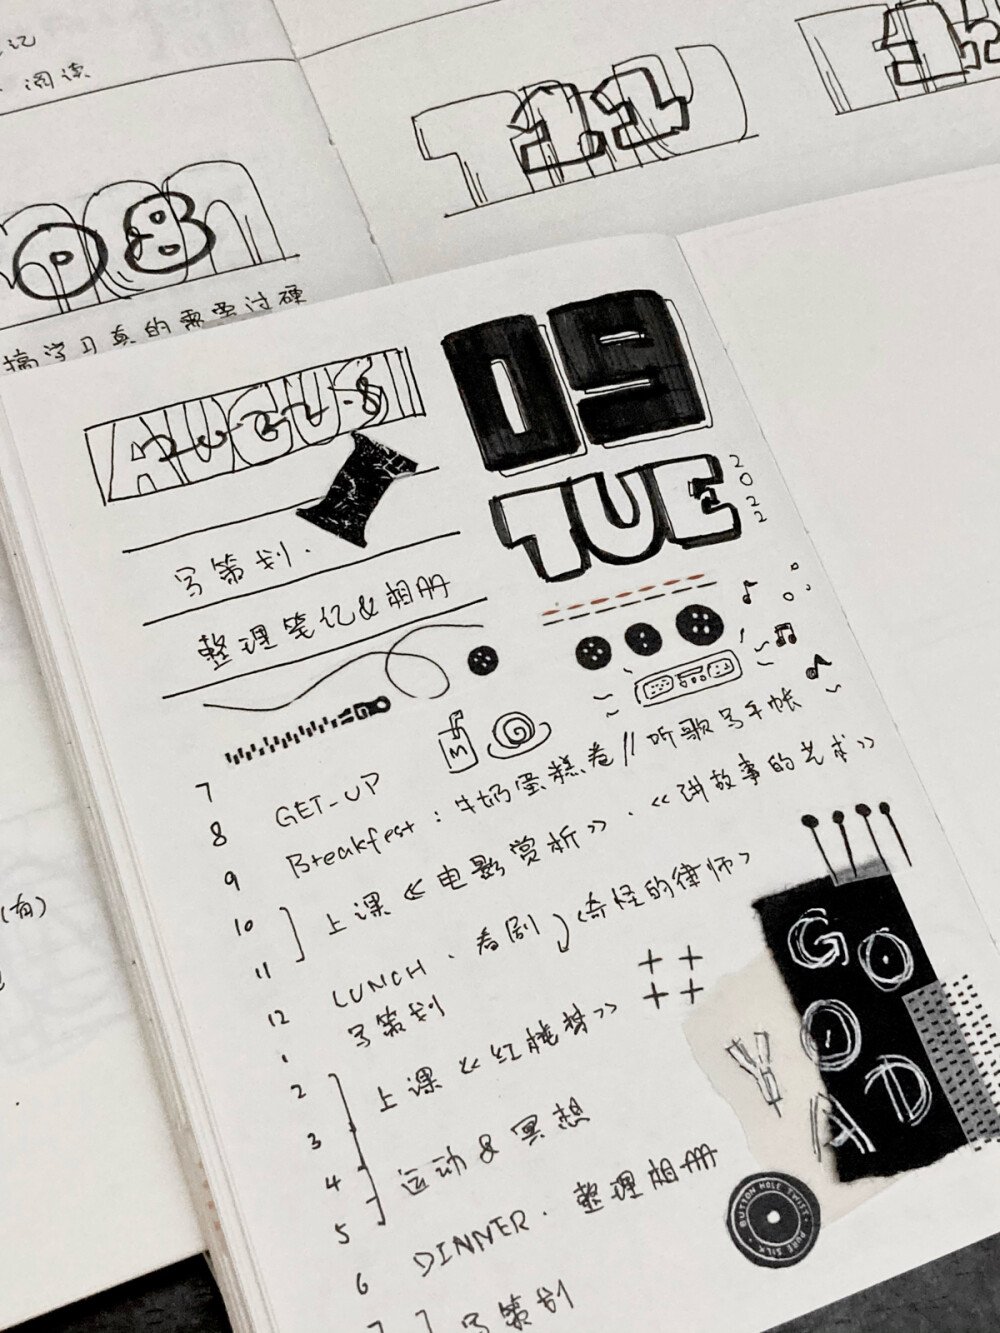 记
阅读
08
Mon
11
THU
搞学习真的需要过硬
(有)
AUGUST
2022.8
09
TUE
2022
写策划.
整理笔记&相册
M
7 GET-UP
8 Breakfest: 牛奶蛋糕卷 // 听歌写手帐
9 上课《电影赏析》.《讲故事的艺术》
10
11 LUNCH . 看剧 《奇怪的律师》
12 写策划
1 上课《红楼梦》
2
3 运动&冥想
4
5 DINNER . 整理相册
6
7 写策划
GOOD
YAD
BUTTON HOLE TWIST • PURE SILK •